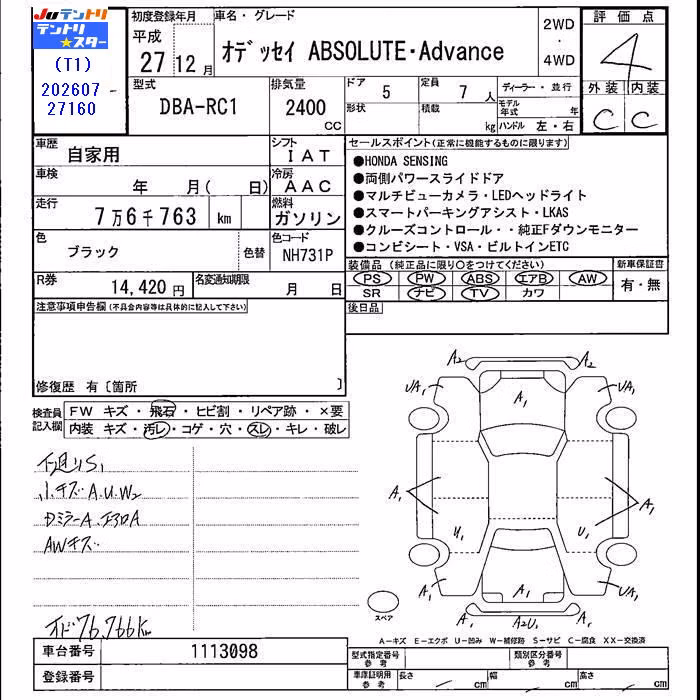 Juテントリ
テントリ★スター
(T1)
202607-
27160
初度登録年月
平成
27 12月
車名・グレード
オデッセイ ABSOLUTE・Advance
2WD
・
4WD
評価点
4
外装 内装
C C
型式
DBA-RC1
排気量
2400
CC
ドア 5
形状
定員 7人
積載 kg
ディーラー・並行
モデル年式 年
ハンドル 左・右
車歴
自家用
シフト
IAT
車検
年 月( 日)
冷房
AAC
走行
7万6千763 km
燃料
ガソリン
色
ブラック
色替
色コード
NH731P
R券
14,420円
名変通知期限
月 日
セールスポイント(正常に機能するものに限ります)
●HONDA SENSING
●両側パワースライドドア
●マルチビューカメラ・LEDヘッドライト
●スマートパーキングアシスト・LKAS
●クルーズコントロール・・純正Fダウンモニター
●コンビシート・VSA・ビルトインETC
装備品(純正品に限り〇をつけてください)
PS PW ABS エアB AW
SR ナビ TV カワ
新車保証書
有・無
後日品
注意事項申告欄(不具合内容等は具体的に記入して下さい)
修復歴 有〔箇所 〕
検査員記入欄
FW キズ・飛石・ヒビ割・リペア跡・×要
内装 キズ・汚レ・コゲ・穴・スレ・キレ・破レ
下廻りS1
小キズA.U.W2
DミラーA.エアロA
AWキズ
オド76,766km
A2 A2
UA1 A1 UA1
A1 A1
U1 U1
UA1 A1 UA1
A1 A2U1 A1
スペア
A-キズ E-エクボ U-凹み W-補修跡 S-サビ C-腐食 XX-交換済
車台番号 1113098
登録番号
型式指定番号
参考
類別区分番号
参考
車庫証明用
参考
長さ cm
幅 cm
高さ cm